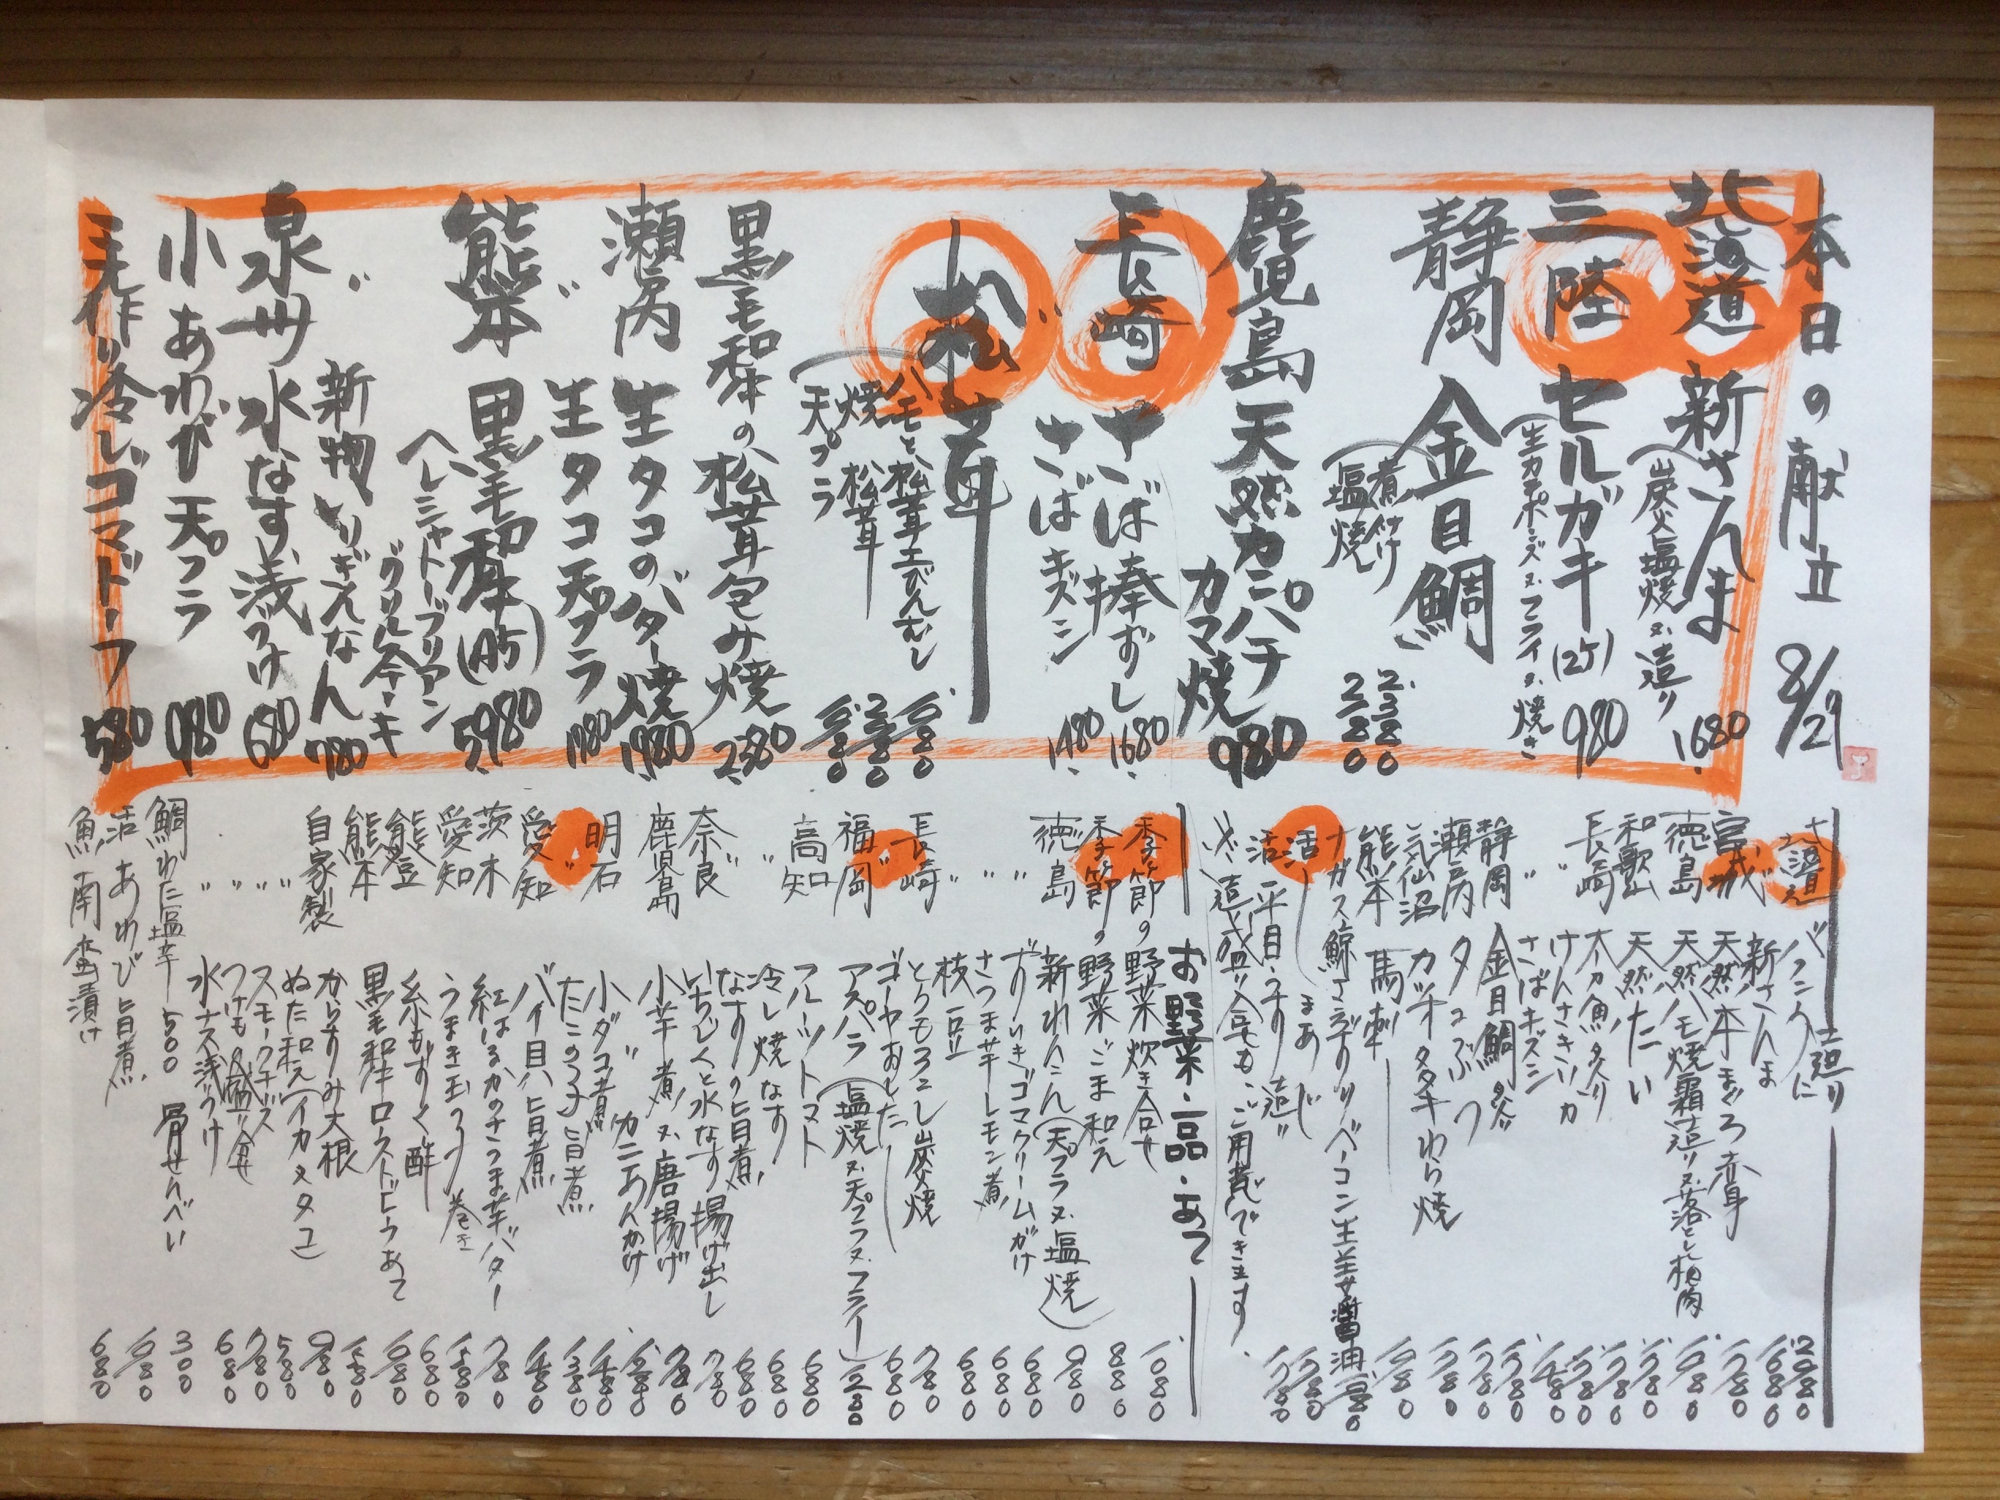 本日の献立 8/29
北海道 新さんま 1680
(炭火塩焼又造り
三陸 セルガキ(2ケ) 980
(生カキポンズ又フライ又焼き
静岡 金目鯛
(煮付け 2380
塩焼 2380
鹿児島 天然カンパチ
カマ焼 980
長崎 さば棒ずし 1680
〃 さばキズシ 1480
松茸
ハモと松茸土びんむし 1680
焼松茸 2380
天プラ 1680
黒毛和牛の松茸包み焼 2380
瀬戸内 生タコのバター焼 1980
〃 生タコ天プラ 1780
熊本 黒毛和牛(A5) 5980
ヘレシャトーブリアン
グリルステーキ
〃 新物いりぎんなん 780
泉州 水なす浅づけ 680
小あわび天プラ 980
手作り冷しゴマドーフ 580
造り
北海道 バフンうに 2080
〃 新さんま 1680
宮城 天然本まぐろ 1780
徳島 天然ハモ焼霜造り又落とし梅肉
和歌山 天然たい
長崎 太刀魚炙り
〃 けんさきいか
〃 さばキズシ 1480
静岡 金目鯛炙り
瀬戸内 タコぶつ
気仙沼 カツオタタキわら焼
熊本 馬刺
ナガス鯨さえずりベーコン生姜醤油
活 まあじ
活 平目うすり造り
造り盛り合せもご用意できます。
お野菜・一品・あて
季節の野菜炊き合せ 1080
季節の野菜ごま和え 880
徳島 新れんこん(天プラ又塩焼) 980
〃 ずいきゴマクリームがけ 680
〃 さつま芋レモン煮 680
〃 枝豆 680
長崎 とうもろこし炭火焼 780
〃 ゴーヤおしたし 680
福岡 アスパラ(塩焼又天プラ又フライ) 1280
高知 フルーツトマト 680
〃 冷し焼なす 680
〃 なすの旨煮 680
奈良 いちじくと水なす揚げ出し 780
鹿児島 小芋煮又唐揚げ 780
〃 カニあんかけ
明石 小ダコ煮 1480
〃 たこの子旨煮 1380
愛知 バイ貝旨煮 1480
茨木 紅はるかのさつま芋バター 780
愛知 うまき玉子巻き
能登 糸もずく酢 680
熊本 黒毛和牛ローストビーフあて
自家製 からすみ大根
〃 ぬた和え(イカ又タコ) 980
〃 スモークチーズ 580
〃 つけもの盛り合せ 780
〃 水ナス浅づけ 680
鯛わた塩辛 500 骨せんべい 300
活あわび旨煮
魚南蛮漬け 680